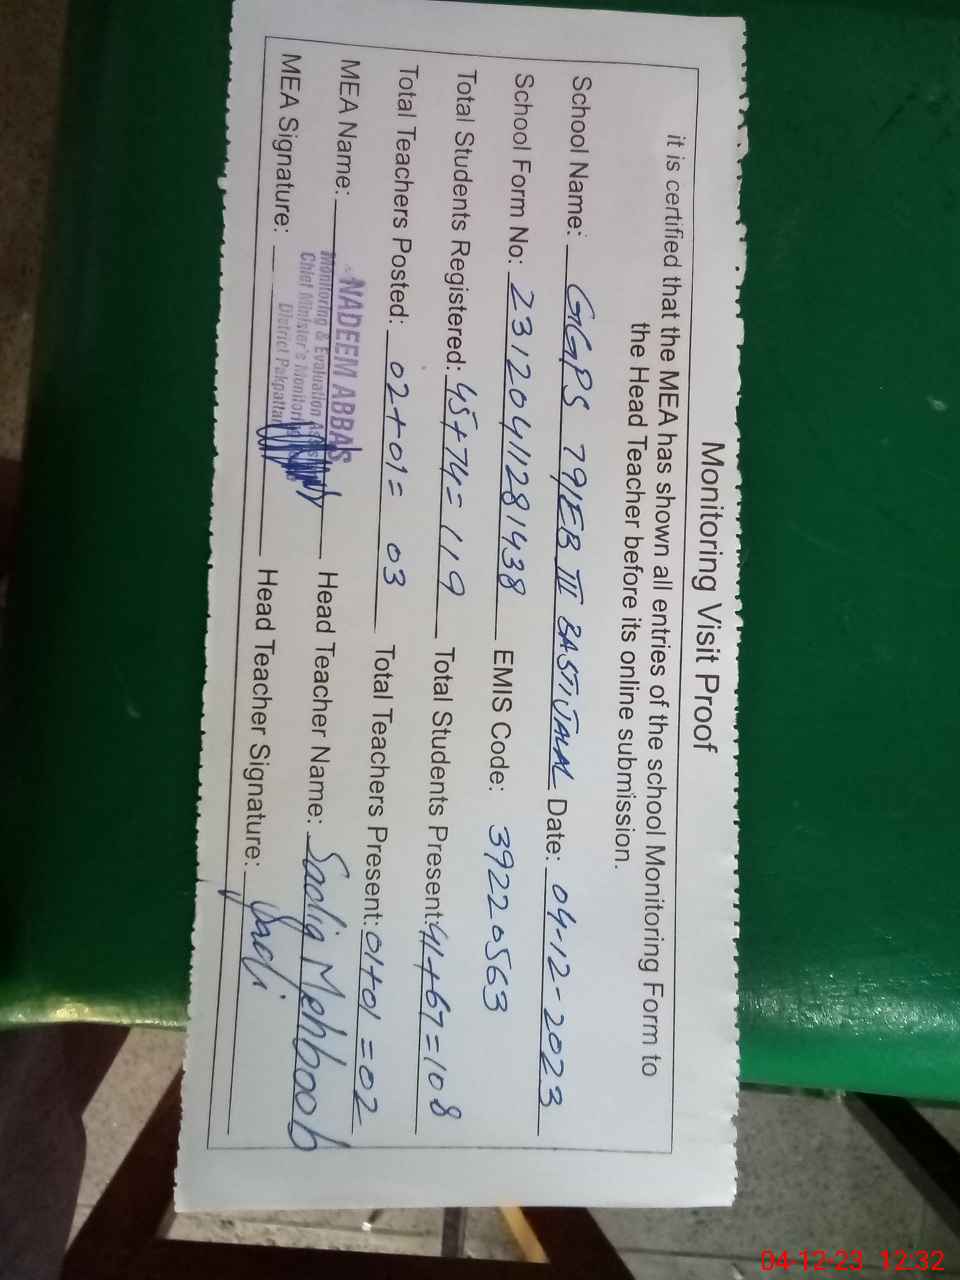 Monitoring Visit Proof
it is certified that the MEA has shown all entries of the school Monitoring Form to
the Head Teacher before its online submission.
School Name: GGPS 79/EB III BASTI JALAL Date: 04-12-2023
School Form No: 23120411281438 EMIS Code: 39220563
Total Students Registered: 45+74=119 Total Students Present: 41+67=108
Total Teachers Posted: 02+01= 03 Total Teachers Present: 01+01=02
MEA Name: NADEEM ABBAS Head Teacher Name: Sadia Mehboob
Monitoring & Evaluation
Chief Minister's Monitoring
District Pakpattan
MEA Signature: Head Teacher Signature: Sadi
04-12-23 12:32